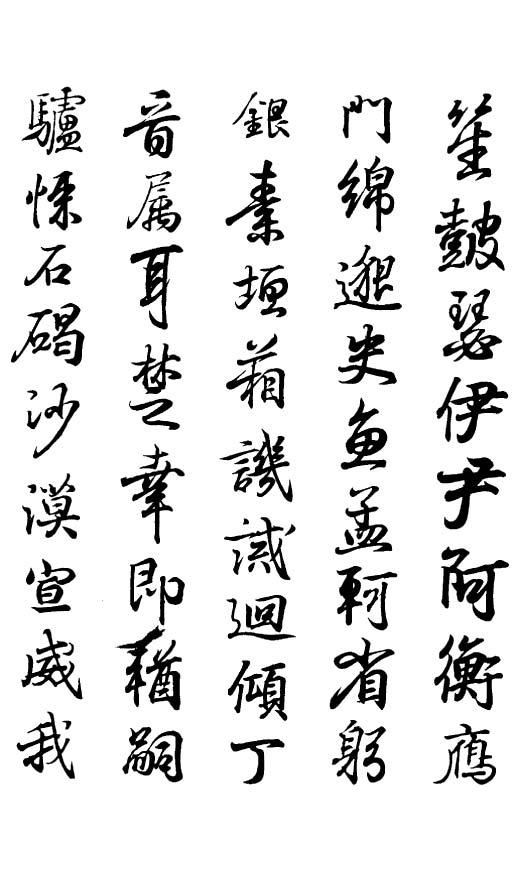 笙鼓瑟伊尹阿衡雁
門綿邈史魚孟軻省躬
銀素垣箱譏誡迴傾丁
音属耳楚幸即猶嗣
驢慄石碣沙漠宣威我